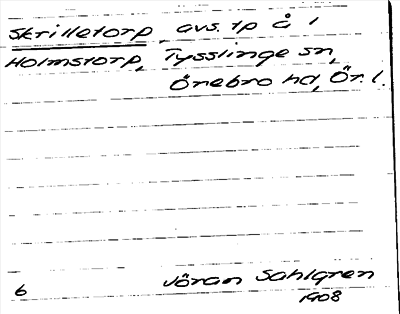 Skrilletorp, avs. tp å 1
Holmstorp, Tysslinge sn,
Örebro hd, Ör. l.
6 Jöran Sahlgren
1908